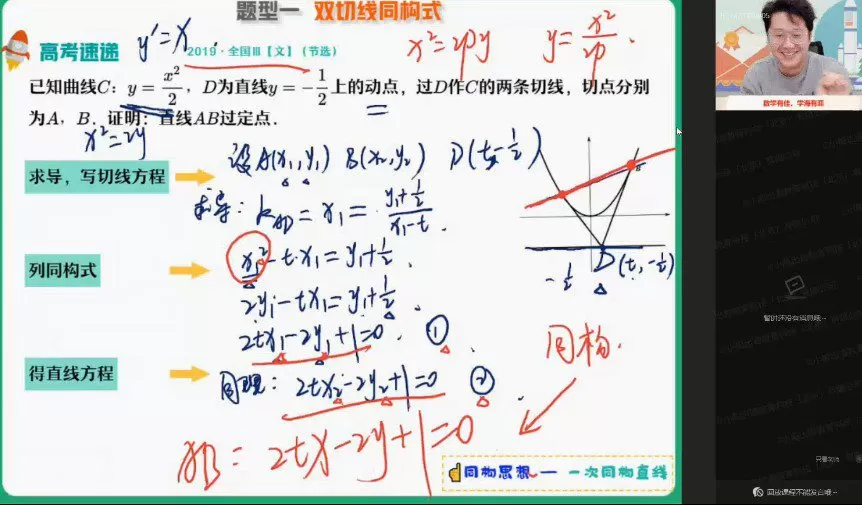 题型一 双切线同构式
高考速递
y'=x
2019·全国Ⅲ【文】(节选)
x²=2py
y=x²/2p.
已知曲线C：y=x²/2，D为直线y=-1/2上的动点，过D作C的两条切线，切点分别
为A，B．证明：直线AB过定点．
x²=2y
求导，写切线方程
设A(x₁,y₁) B(x₂,y₂) D(t,-1/2)
求导：k_AD=x₁=(y₁+1/2)/(x₁-t).
列同构式
x₁²-t·x₁=y₁+1/2.
2y₁-tx₁=y₁+1/2.
2tx₁-2y₁+1=0. ①
得直线方程
同理：2tx₂-2y₂+1=0 ②
AB：2tx-2y+1=0
同构.
-1/2
D(t,-1/2)
同构思想 — 一次同构直线
数学有佳，学海有涯
暂时还没有消息哦~
只看老师
回放课程不能发言哦~